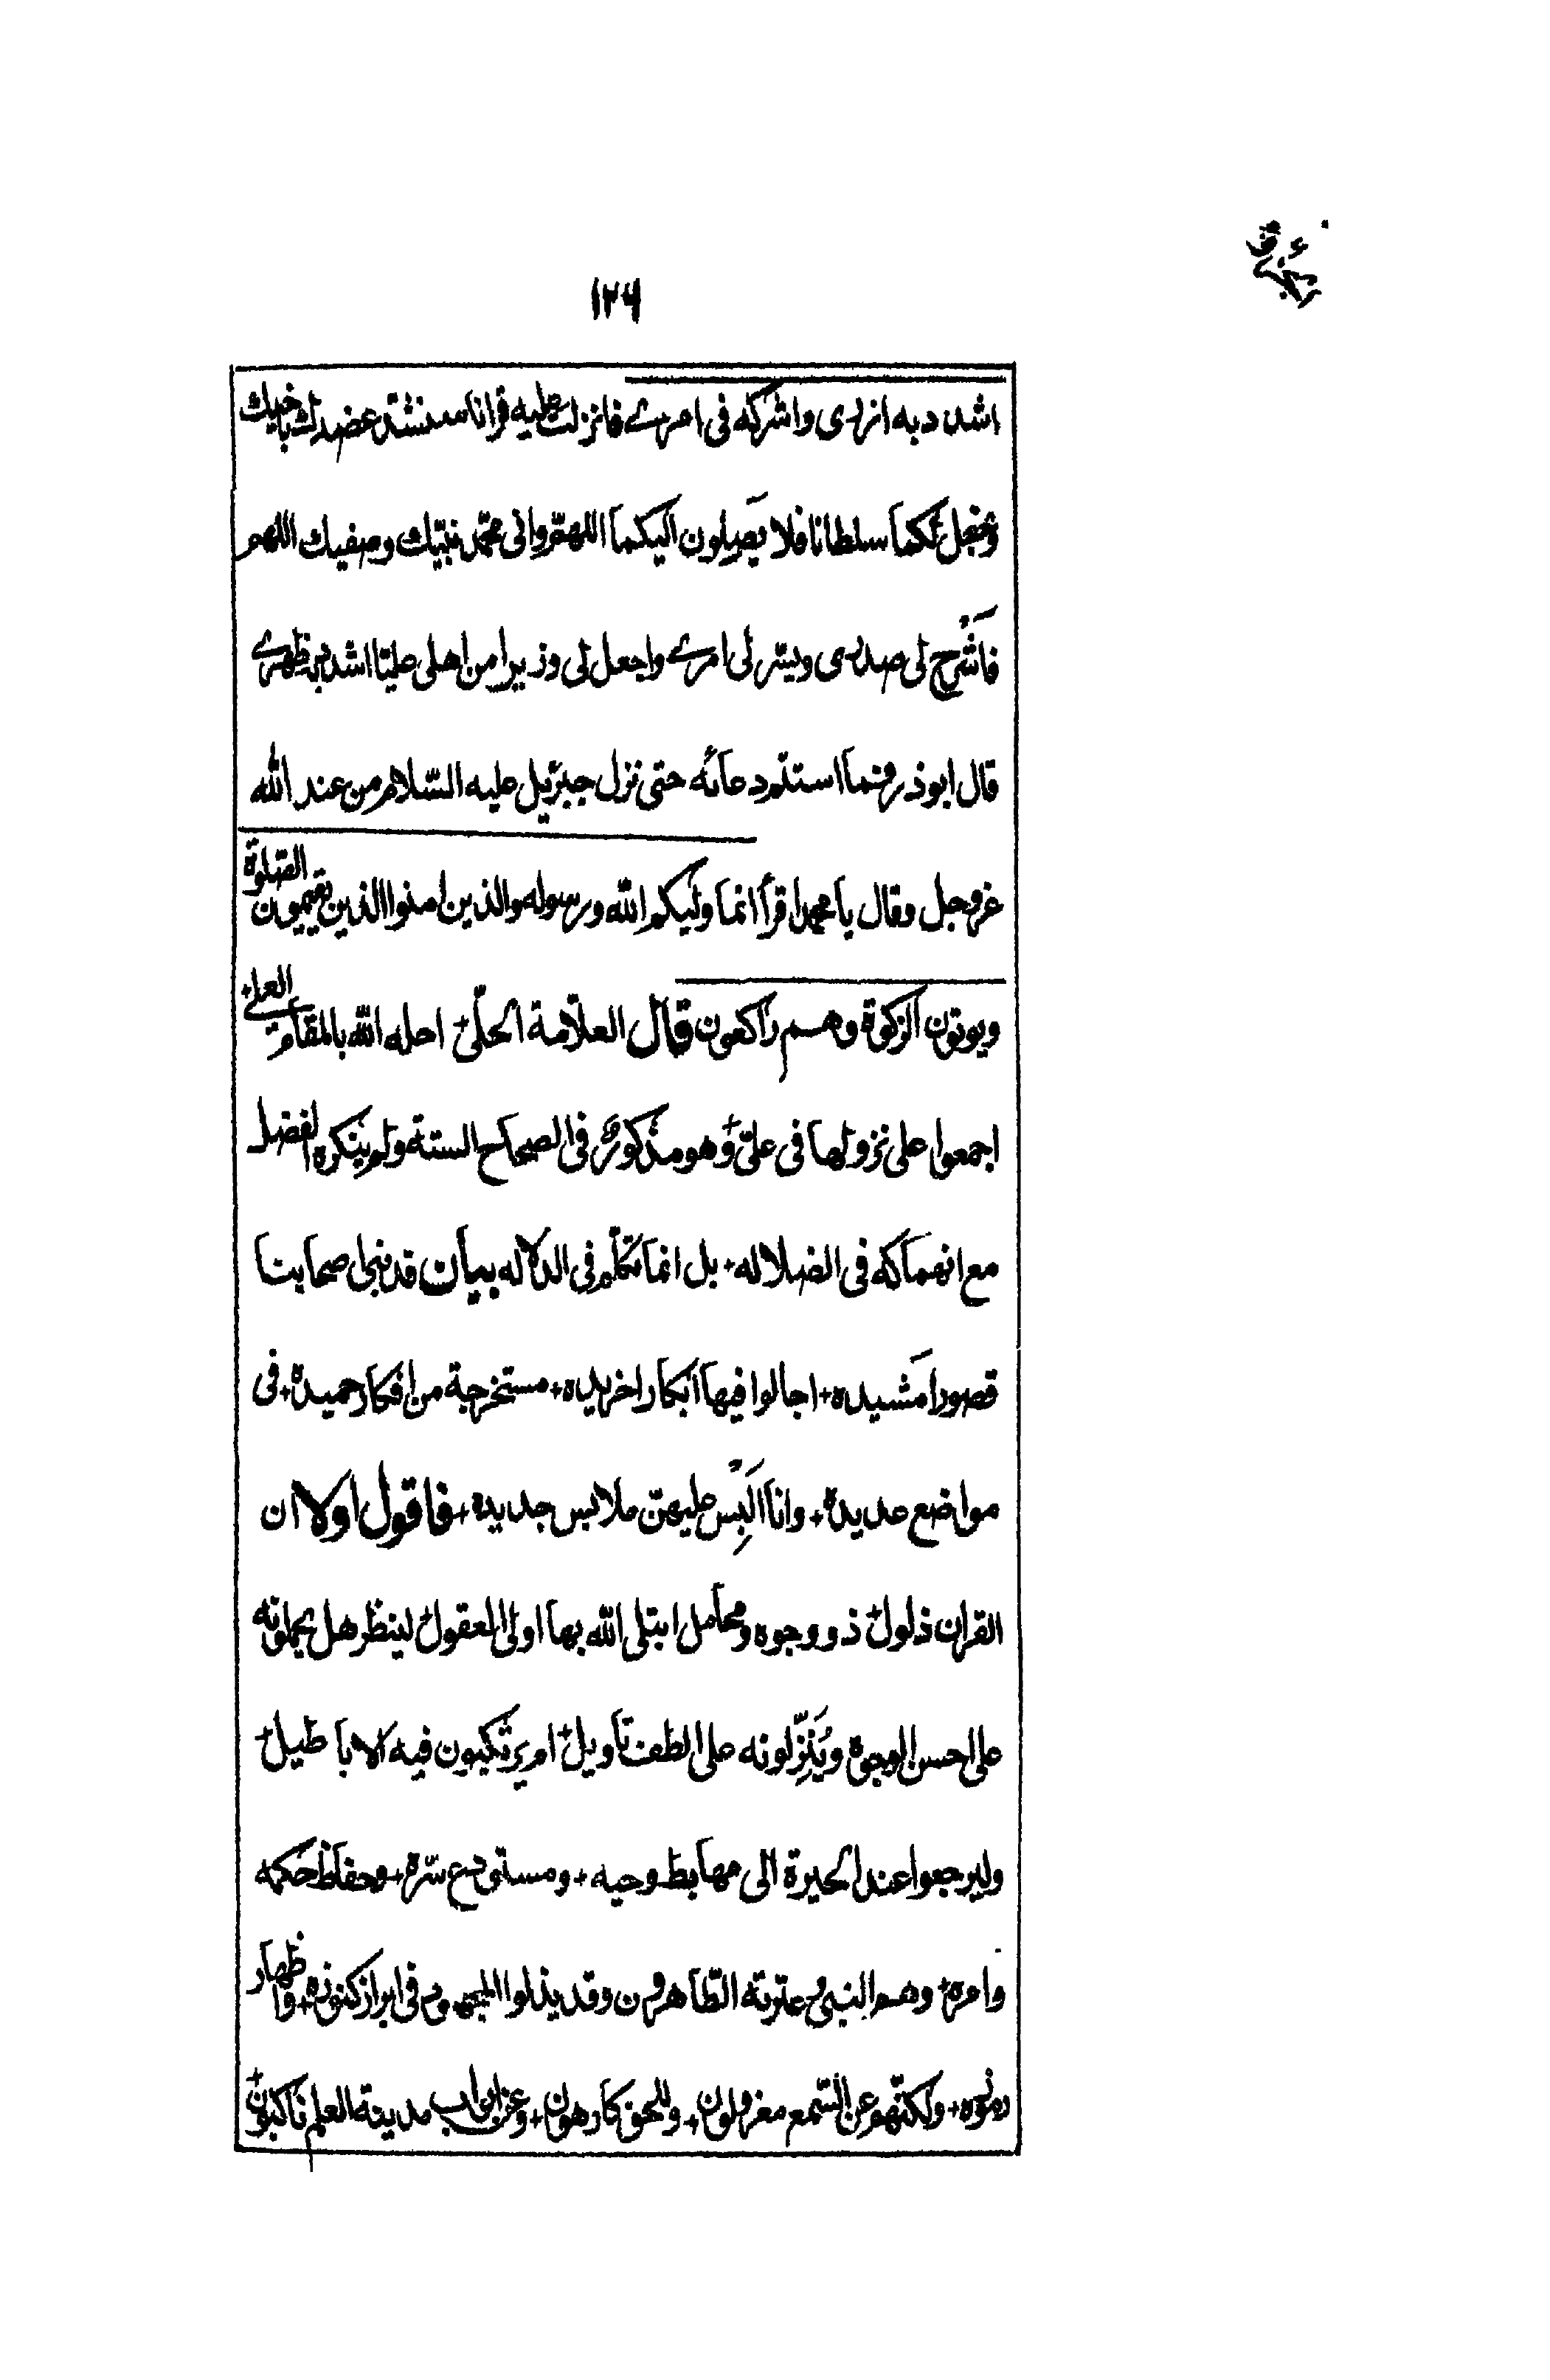 ١٢٦
اشدد به ازری واشرکه فی امرے فانزلت علیه قرانا سنشد عضدك باخيك
ونجعل لكما سلطانا فلا يَصِلون اليكما اللهمّ وانى محمّد نبيّك وصفيك اللهم
فاشْرَح لى صدرى ويسّر لى امرے واجعل لى وزيرا من اهلى عليّا اشدد به ظهرے
قال ابوذر رض فما استتم دعائه حتى نزل جبرئيل عليه السّلام من عند الله
عز وجل وقال يا محمد اقرأ انما وليكم الله ورسوله والذين امنوا الذين يقيمون الصّلوة
ويوتون الزكوة وهم راكعون قال العلاّمة الحلّى+ احله الله بالمقام العلى+
اجمعوا على نزولها فى علىّ+ وهو مذكورٌ فى الصحاح الستة ولم ينكره الفضل
مع انهماكه فى الضلاله+ بل انما تكلّم فى الدلاله بيان قد بنى اصحابنا
قصورا مَشيده+ اجالوا فيها ابكارا خريده+ مستخرجة من افكار حميده+ فى
مواضع عديده+ وانا اُلَبِس عليهنّ ملابس جديده+ فاقول اولا ان
القران ذلول+ ذو وجوه ومحامل ابتلى الله بها اولى العقول+ لينظر هل يحملونه
على احسن الوجوه ويُنَزِّلونه على الطف تاويل+ ام يرتكبون فيه الاباطيل+
وليرجعوا عند الحيرة الى مهابط وحيه+ ومستودع سّره+ وحفاظ حكمه
وامره+ وهم النبى وعترته الطّاهرون وقد بذلوا المجهود فى ابراز كنوزه+ واظهار
رموزه+ ولكنّهم عن السّمع معزولون+ وللحق كارهون+ وعن ابواب مدينة العلم ناكبون+